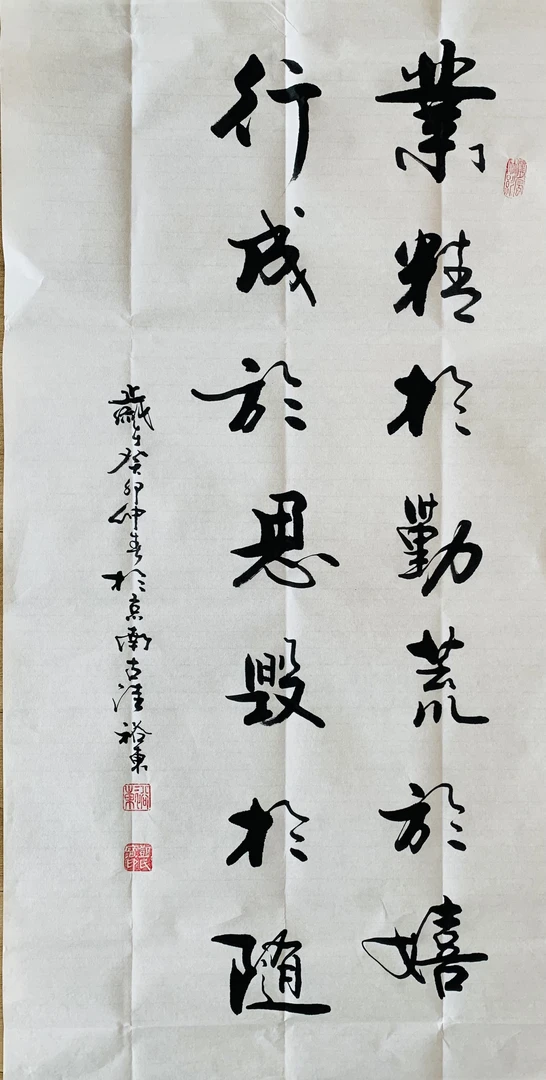 業精於勤荒於嬉
行成於思毀於随
歲在癸卯仲春於京南古淮裕東